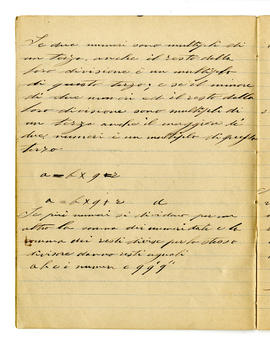 Se due numeri sono multipli di
un terzo, anche il resto della
loro divisione è un multiplo
di questo terzo; e se il minore
di due numeri ed il resto della
loro divisione sono multipli di
un terzo anche il maggiore de'
due numeri è un multiplo di questo
terzo
a = b x q + r
a = b x q + r d
Se più numeri si dividono per un
altro la somma dei numeri dati e la
somma dei resti divise per lo stesso
divisore danno resti eguali
a b c i numeri e q q' q''